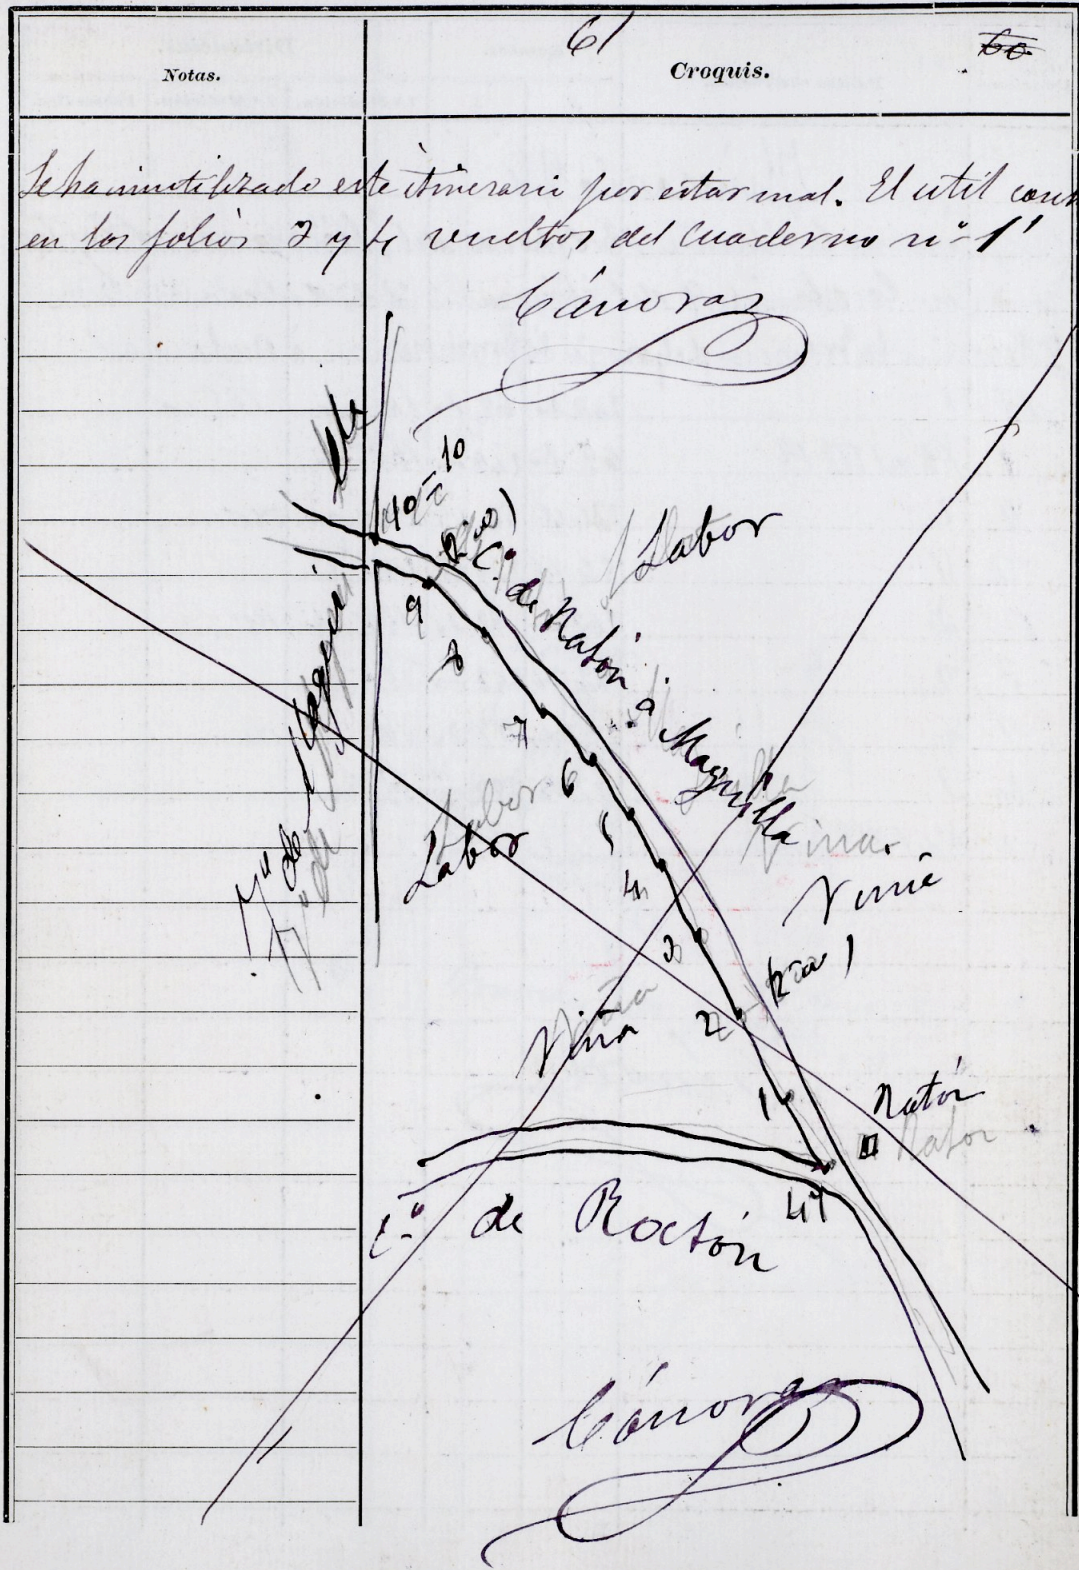 61
60
Notas.
Croquis.
Se ha inutilizado este itinerario por estar mal. El util cons
en los folios 3 y 4 vueltos del Cuaderno nº 1
Cánovas
40=10
Labor
Cº. de Natón á Maguilla
9
8
7
6
5
4
3
2
1
Labor
Labor
Viña
Viña
Viña
Natón
Natón
41
Cº de Roctón
Cánovas